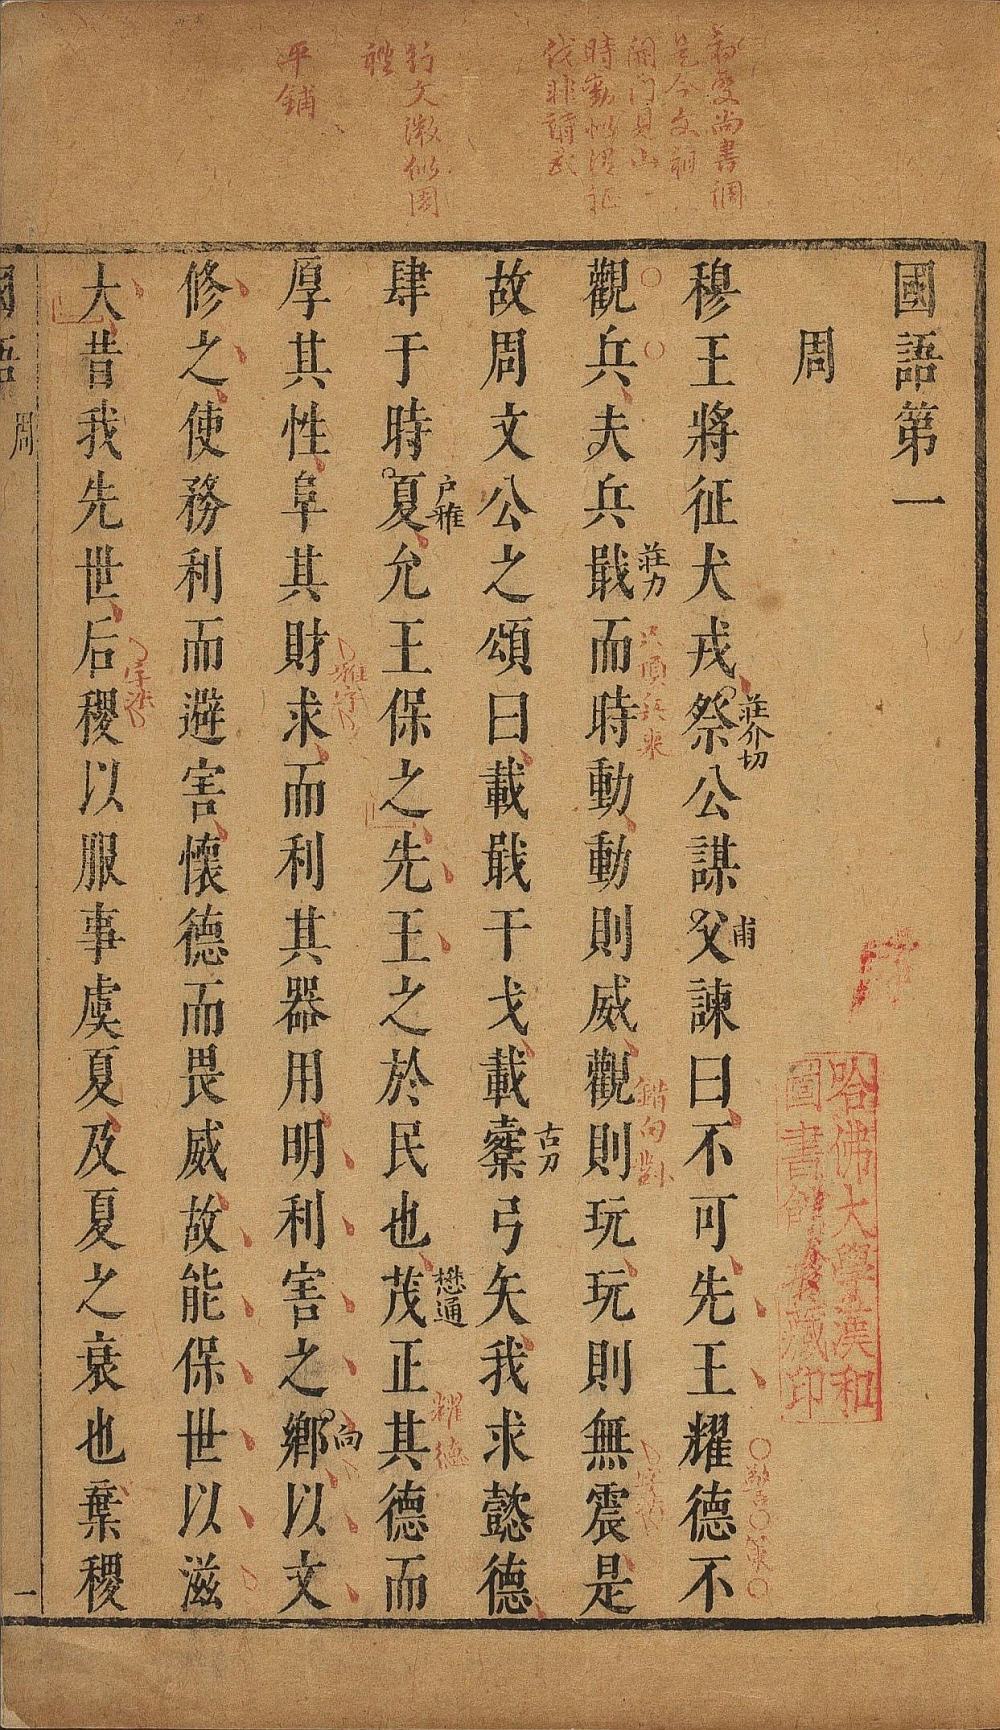 國語第一
周
穆王將征犬戎祭莊介切公謀父甫諫曰不可先王耀德不
觀兵夫兵戢莊力而時動動則威觀則玩玩則無震是
故周文公之頌曰載戢干戈載櫜古刀弓矢我求懿德
肆于時夏戶雅允王保之先王之於民也茂懋通正其德而
厚其性阜其財求而利其器用明利害之鄉向以文
修之使務利而避害懷德而畏威故能保世以滋
大昔我先世后稷以服事虞夏及夏之衰也棄稷
國語
周
一
哈佛大學漢和
圖書館珍藏印
行文漵似周
平鋪
只頂兵來
錯向對
耀德